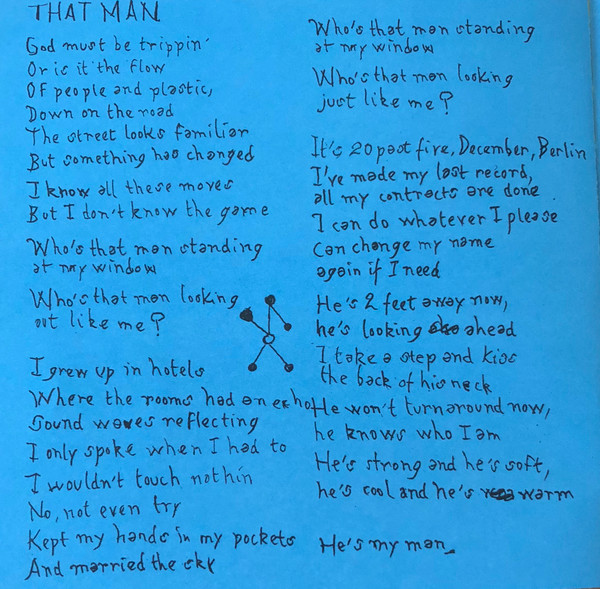 THAT MAN
God must be trippin'
Or is it the flow
Of people and plastic,
Down on the road
The street looks familiar
But something has changed
I know all these moves
But I don't know the game
Who's that man standing
at my window
Who's that man looking
out like me?
I grew up in hotels
Where the rooms had an echo
Sound waves reflecting
I only spoke when I had to
I wouldn't touch nothin
No, not even try
Kept my hands in my pockets
And married the sky
Who's that man standing
at my window
Who's that man looking
just like me?
It's 20 past five, December, Berlin
I've made my last record,
all my contracts are done
I can do whatever I please
Can change my name
again if I need
He's 2 feet away now,
he's looking ahead
I take a step and kiss
the back of his neck
He won't turn around now,
he knows who I am
He's strong and he's soft,
he's cool and he's warm
He's my man